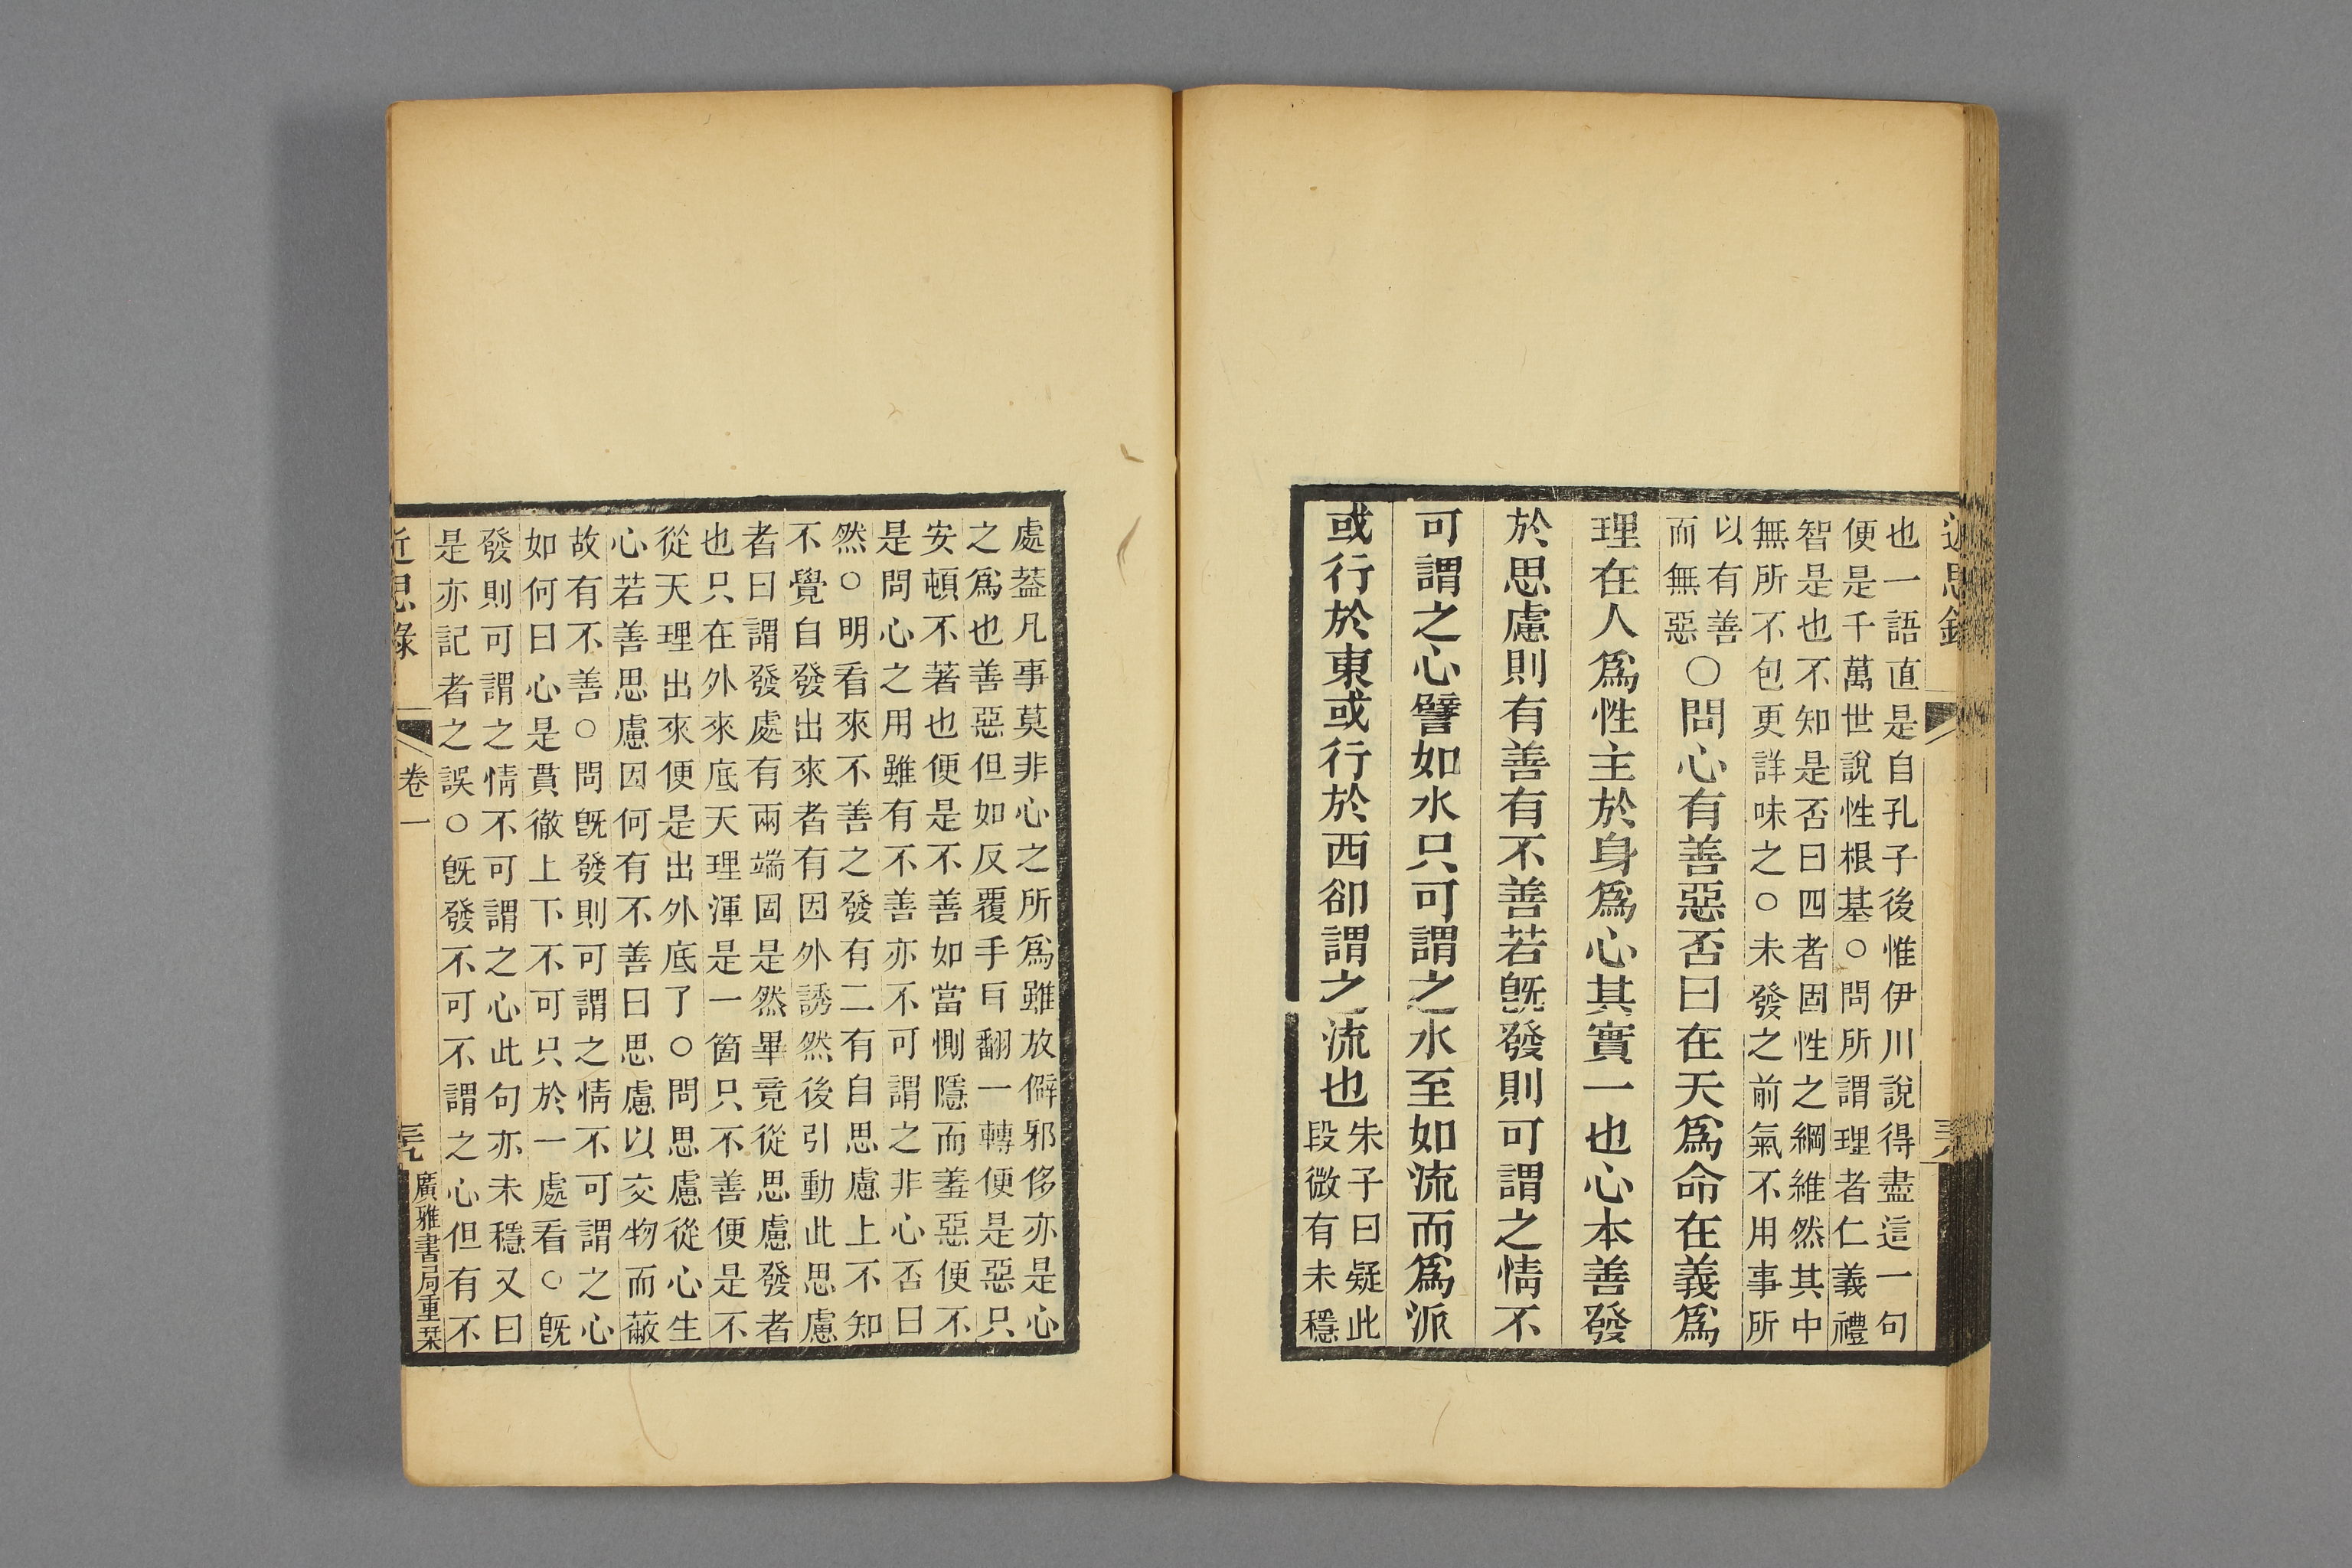 近思錄
也一語直是自孔子後惟伊川說得盡這一句
便是千萬世說性根基○問所謂理者仁義禮
智是也不知是否曰四者固性之綱維然其中
無所不包更詳味之○未發之前氣不用事所
以有善
而無惡
○問心有善惡否曰在天爲命在義爲
理在人爲性主於身爲心其實一也心本善發
於思慮則有善有不善若旣發則可謂之情不
可謂之心譬如水只可謂之水至如流而爲派
或行於東或行於西卻謂之流也
朱子曰疑此
段微有未穩
處葢凡事莫非心之所爲雖放僻邪侈亦是心
之爲也善惡但如反覆手耳翻一轉便是惡只
安頓不著也便是不善如當惻隱而羞惡便不
是問心之用雖有不善亦不可謂之非心否曰
然○明看來不善之發有二有自思慮上不知
不覺自發出來者有因外誘然後引動此思慮
者曰謂發處有兩端固是然畢竟從思慮發者
也只在外來底天理渾是一箇只不善便是不
從天理出來便是出外底了○問思慮從心生
心若善思慮因何有不善曰思慮以交物而蔽
故有不善○問旣發則可謂之情不可謂之心
如何曰心是貫徹上下不可只於一處看○旣
發則可謂之情不可謂之心此句亦未穩又曰
是亦記者之誤○旣發不可不謂之心但有不
近思錄
卷一
廣雅書局重栞